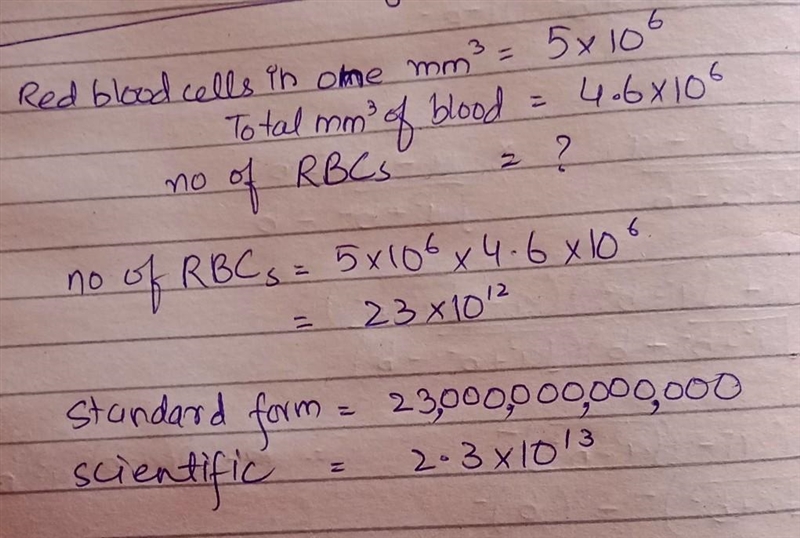 Red blood cells in one mm³ = 5x10⁶
Total mm³ of blood = 4.6x10⁶
no of RBCs = ?
no of RBCs = 5x10⁶ x 4.6 x10⁶
= 23x10¹²
Standard form = 23,000,000,000,000
scientific = 2.3x10¹³